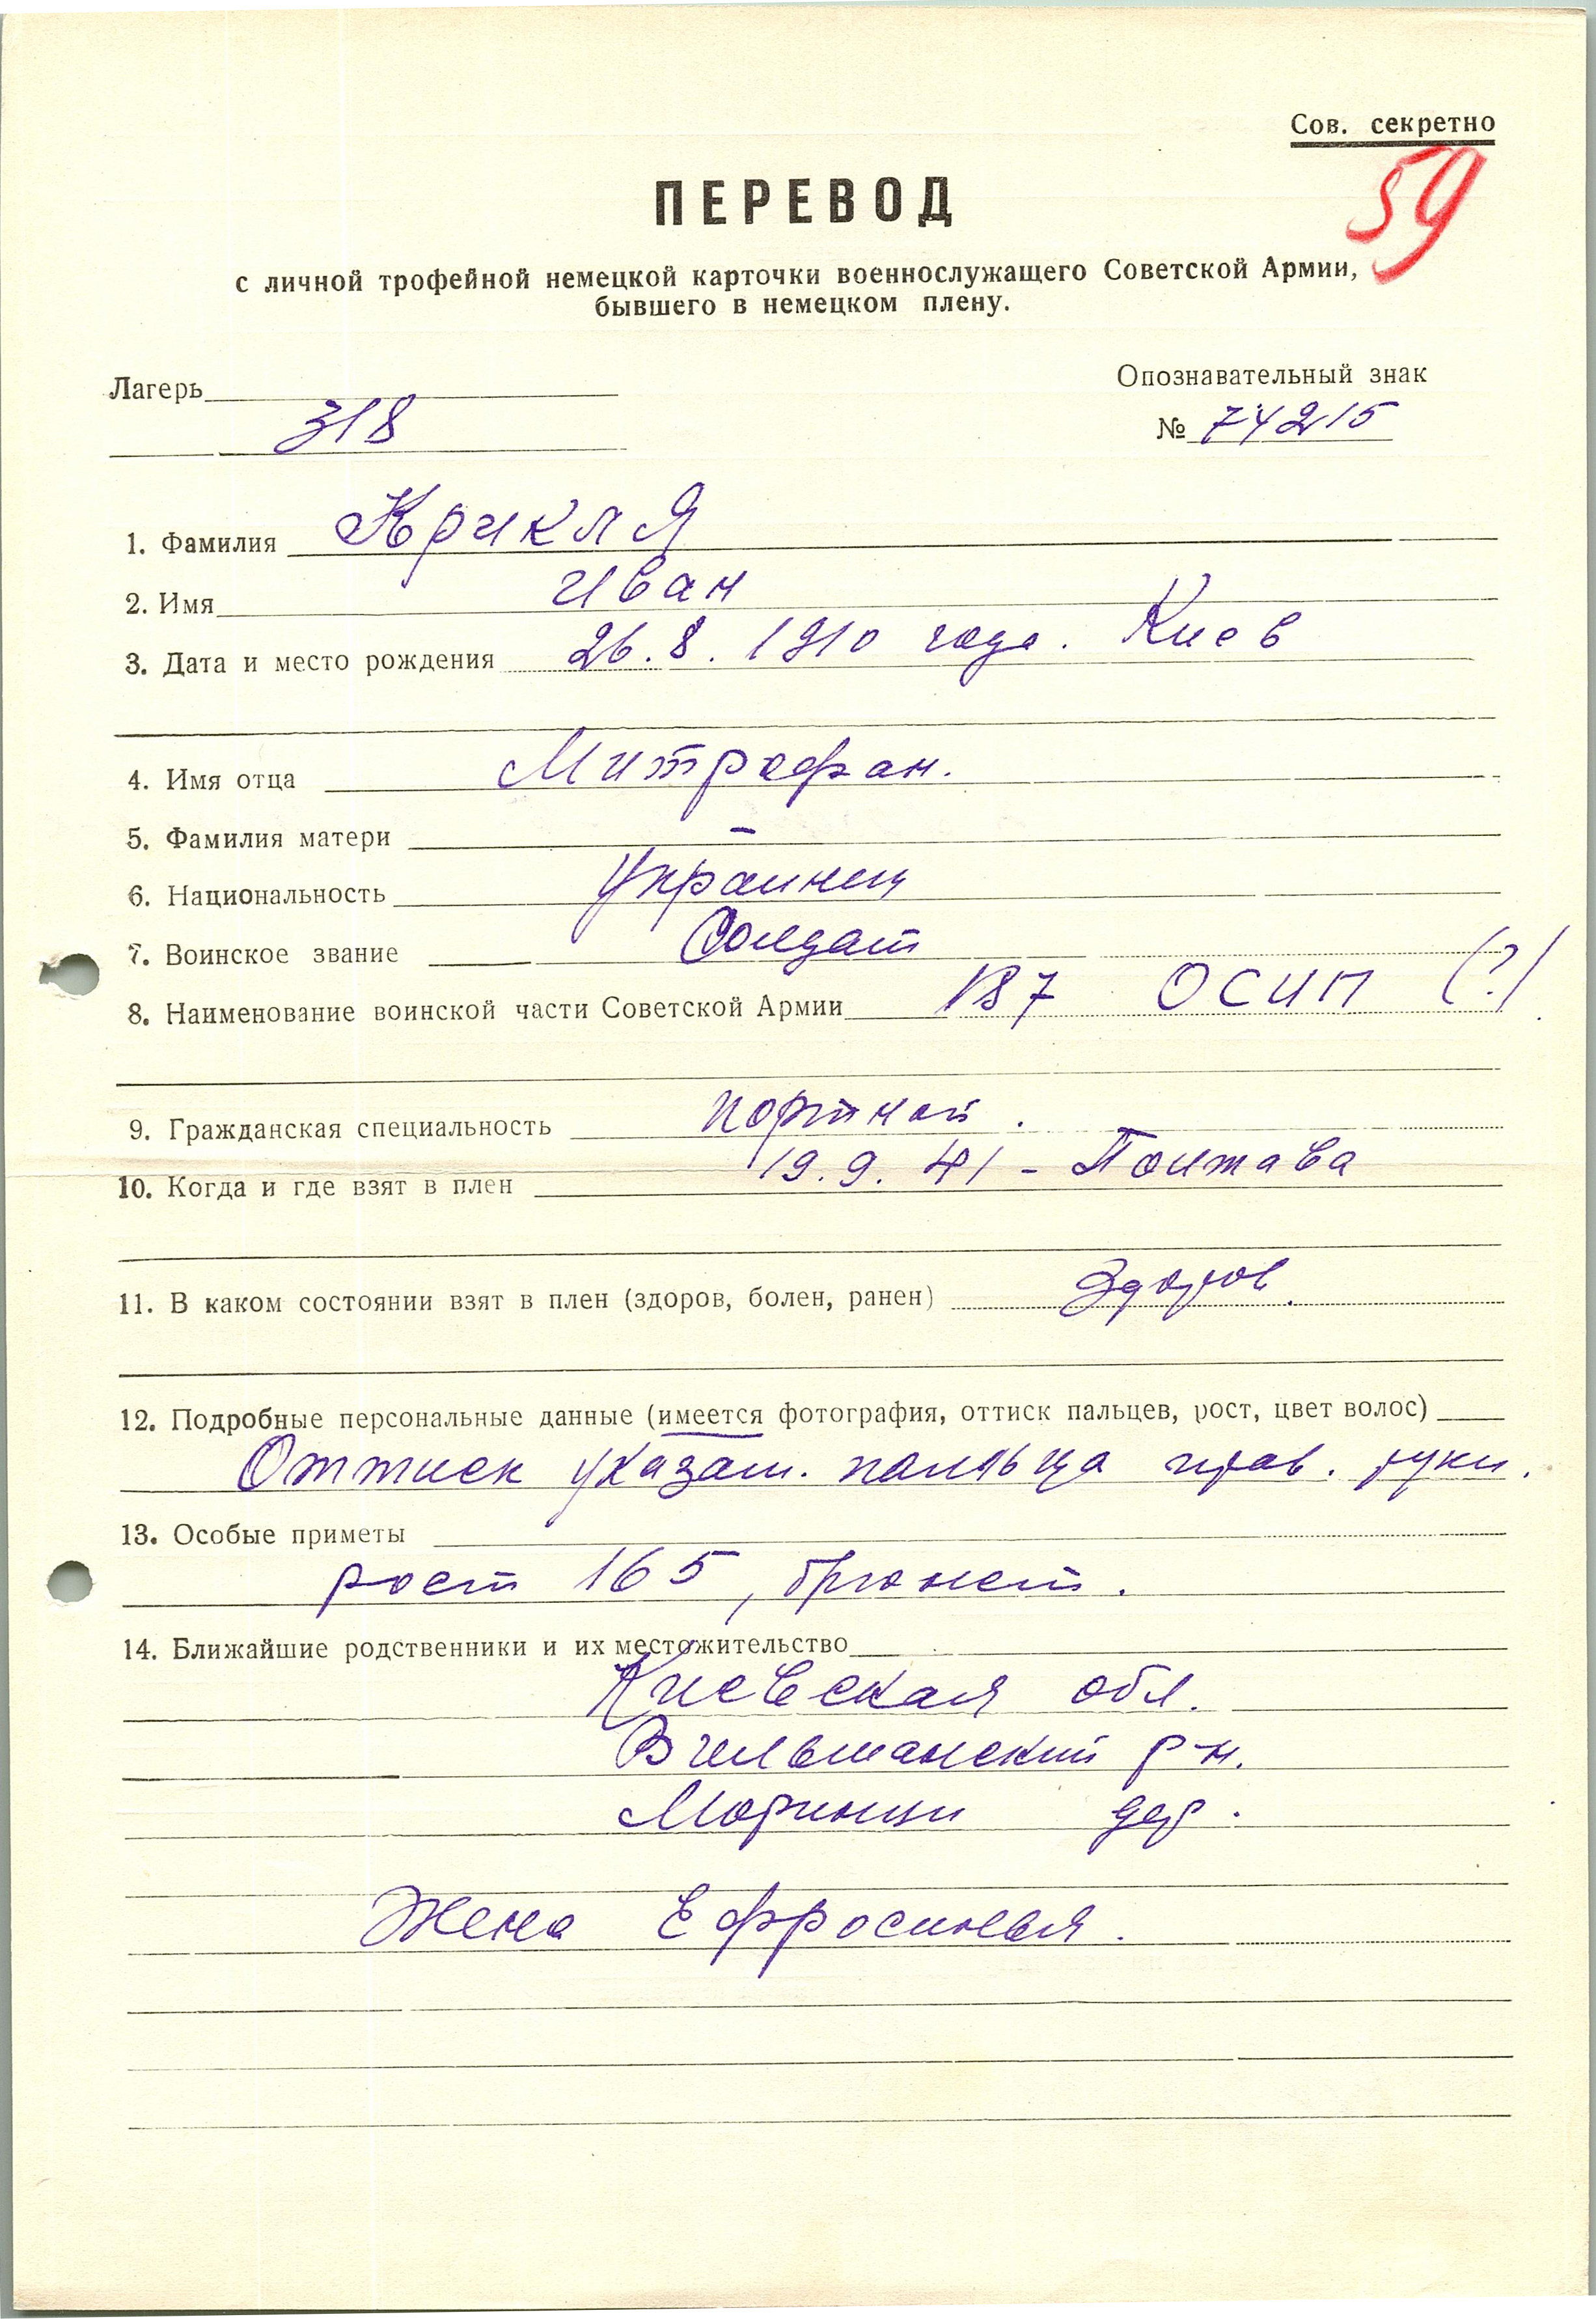 Сов. секретно
59
ПЕРЕВОД
с личной трофейной немецкой карточки военнослужащего Советской Армии,
бывшего в немецком плену.
Лагерь
318
Опознавательный знак
№ 74215
1. Фамилия Крикля
2. Имя Иван
3. Дата и место рождения 26.8.1910 года. Киев
4. Имя отца Митрофан.
5. Фамилия матери –
6. Национальность Украинец
7. Воинское звание Солдат
8. Наименование воинской части Советской Армии 187 ОСИП (?)
9. Гражданская специальность портной.
10. Когда и где взят в плен 19.9.41 - Полтава
11. В каком состоянии взят в плен (здоров, болен, ранен) Здоров.
12. Подробные персональные данные (имеется фотография, оттиск пальцев, рост, цвет волос)
Оттиск указат. пальца прав. руки.
13. Особые приметы
рост 165, брюнет.
14. Ближайшие родственники и их местожительство
Киевская обл.
Вильшанский р-н.
Моринци дер.
Жена Ефросинья.